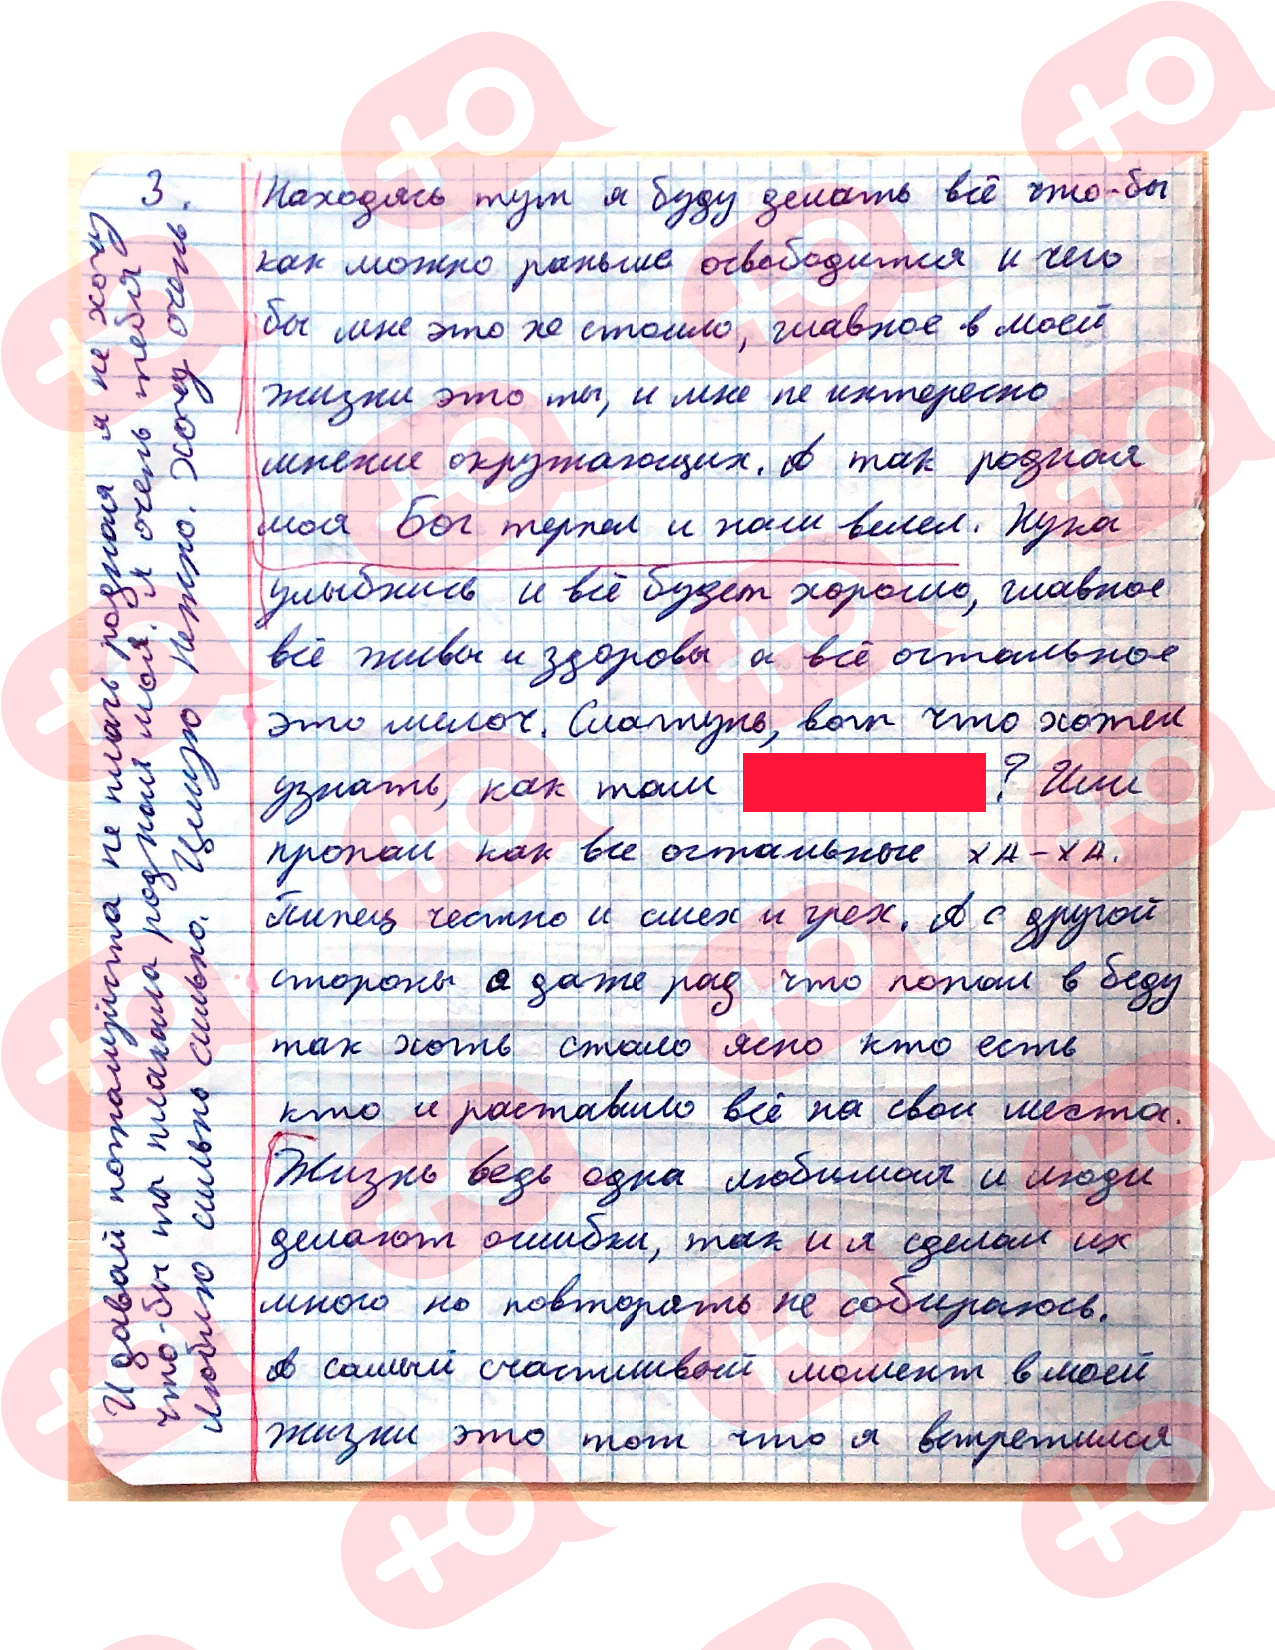 3.
Находясь тут я буду делать всё что-бы
как можно раньше освободится и чего
бы мне это не стоило, главное в моей
жизни это ты, и мне не интересно
мнение окружающих. А так родная
моя Бог терпел и нам велел. Нука
улыбнись и всё будет хорошо, главное
все живы и здоровы а всё остальное
это мелоч. Слатунь, вот что хотел
узнать, как там ? Или
пропал как все остальные ХА-ХА.
Пипец честно и смех и грех. А с другой
стороны я даже рад что попал в беду
так хоть стало ясно кто есть
кто и раставило всё на свои места.
Жизнь ведь одна любимая и люди
делают ошибки, так и я сделал их
много но повторять не собираюсь.
А самый счастливый момент в моей
жизни это тот что я встретился
И давай пожалуйста не плачь родная я не хочу
что-бы ты плакала родная моя. Я очень тебя
люблю сильно сильно. Целую Нежно. Хочу очень.
+Ю